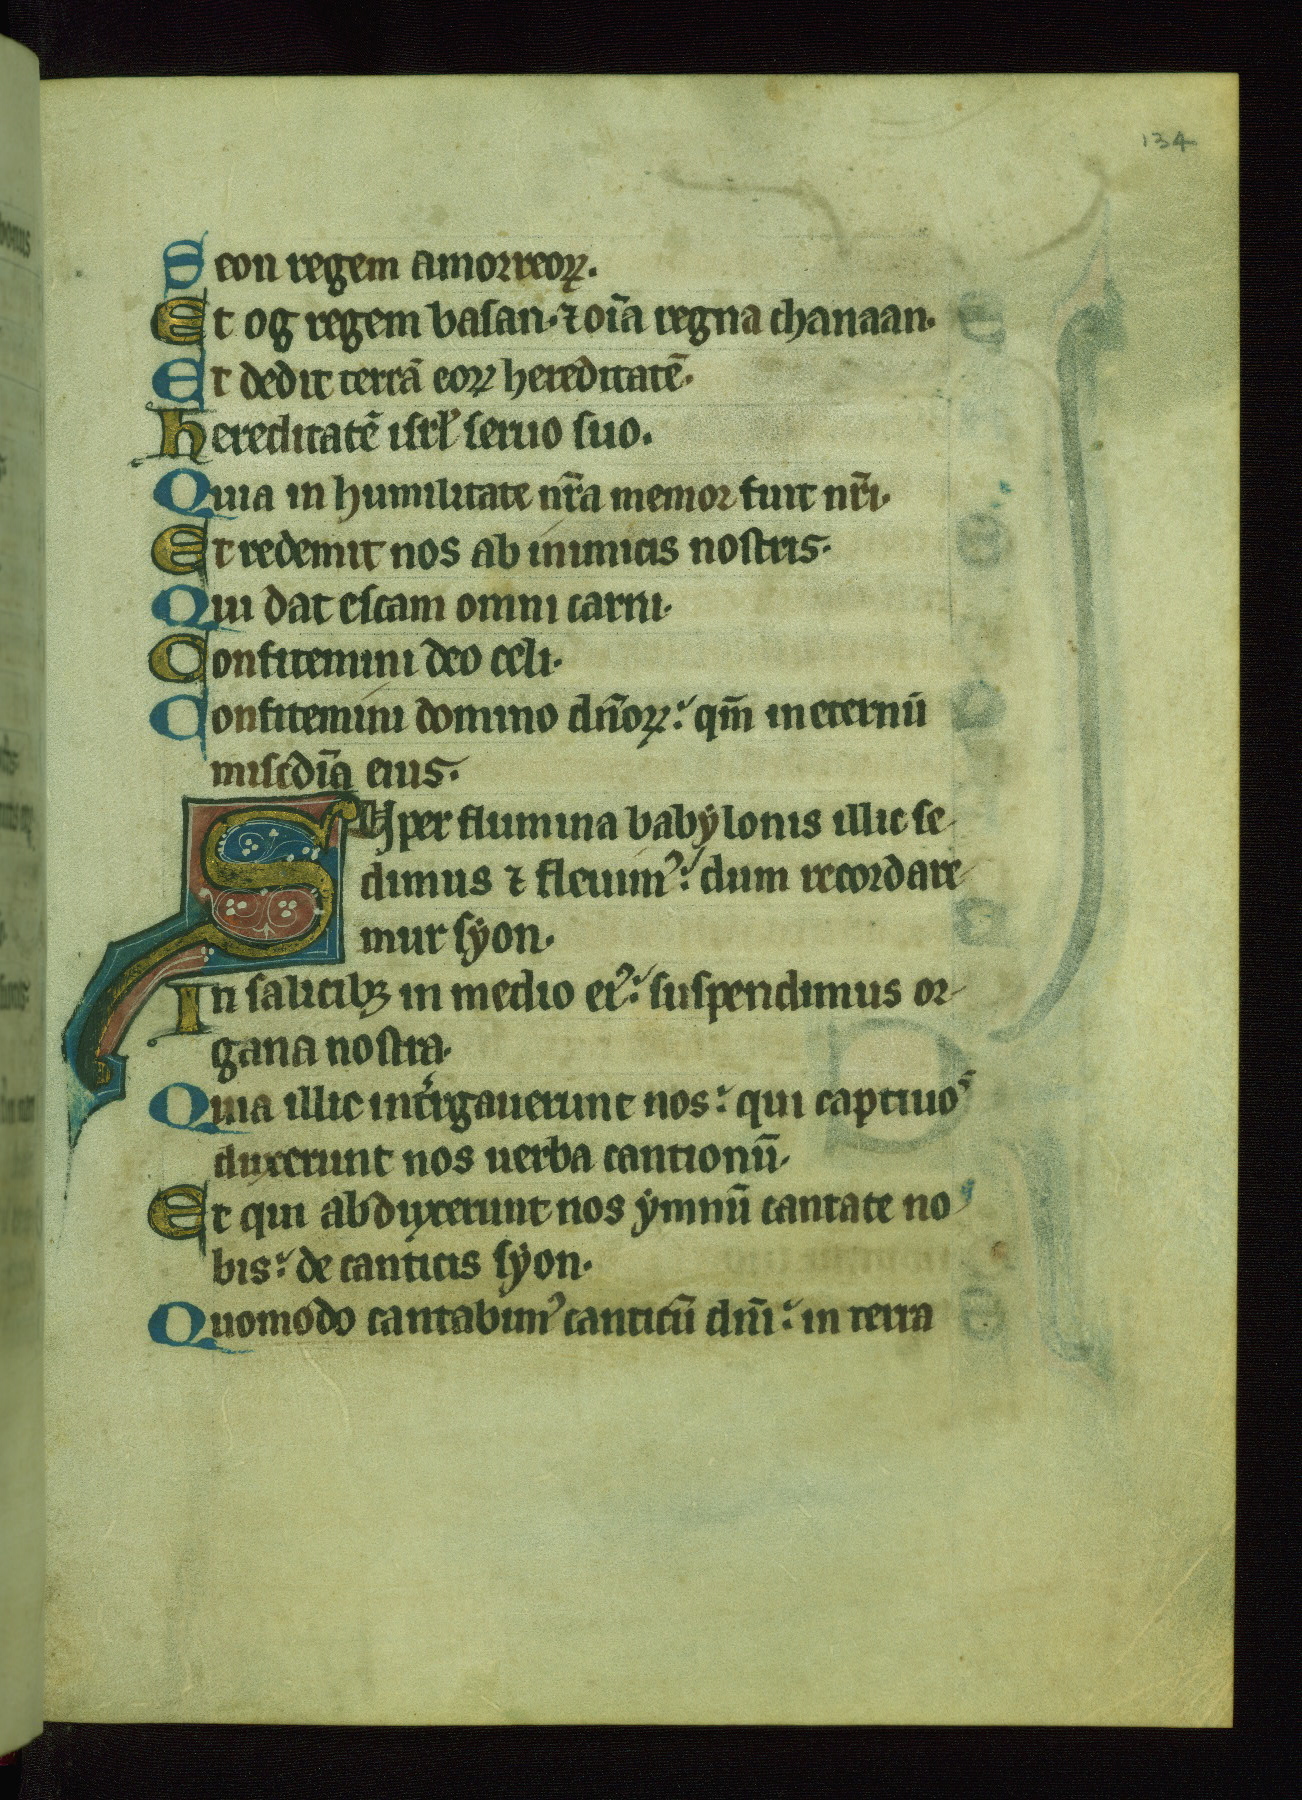 134
Seon regem amorreoꝝ.
Et og regem basan. ⁊ oīa regna chanaan.
Et dedit terrā eoꝝ hereditatē.
Hereditatē isrl̓ seruo suo.
Quia in humilitate nr̄a memor fuit nr̄i.
Et redemit nos ab inimicis nostris.
Qui dat escam omni carni.
Confitemini deo celi.
Confitemini domino dn̄oꝝ: qm̄ in eternū
misc̄dīa eius.
Super flumina babẏlonis illic se-
dimus ⁊ fleuimꝰ: dum recordare-
mur sẏon.
In salicibꝫ in medio eiꝰ: suspendimus or-
gana nostra.
Quia illic int̓rgauerunt nos: qui captiuoˢ
duxerunt nos uerba cantionū.
Et qui abduxerunt nos ẏmnū cantate no
bis: de canticis sẏon.
Quomodo cantabimꝰ canticū dn̄i: in terra